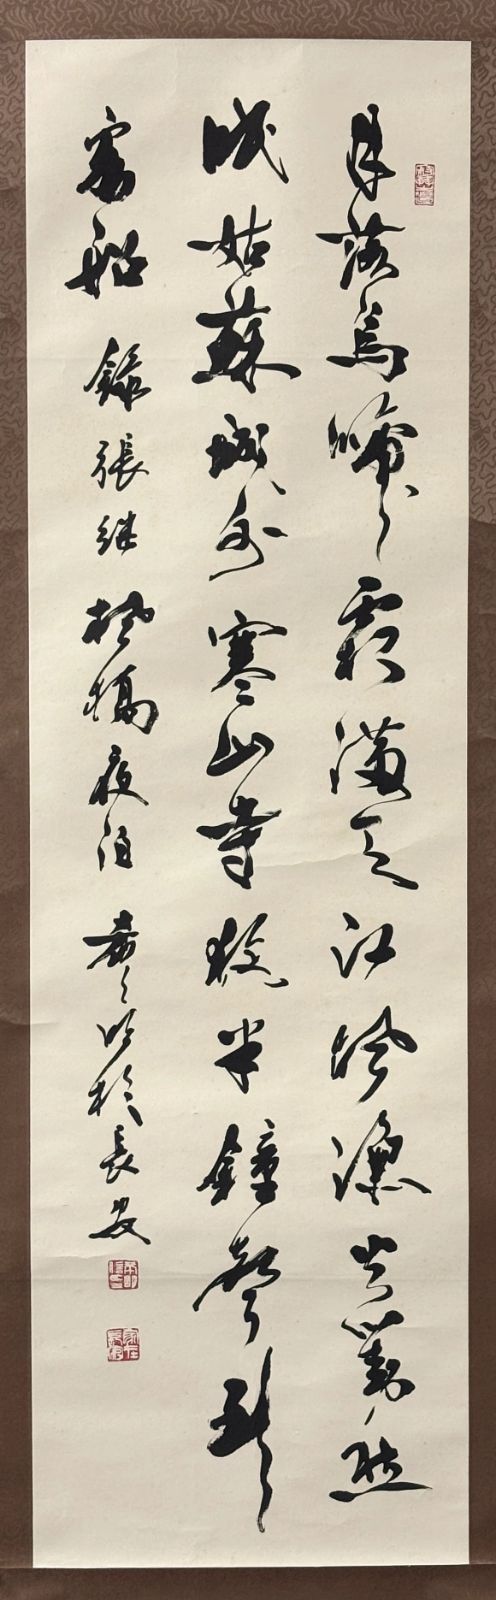 月落烏啼霜滿天江楓漁火對愁
眠姑蘇城外寒山寺夜半鐘聲到
客船 錄張継楓橋夜泊 明於長安